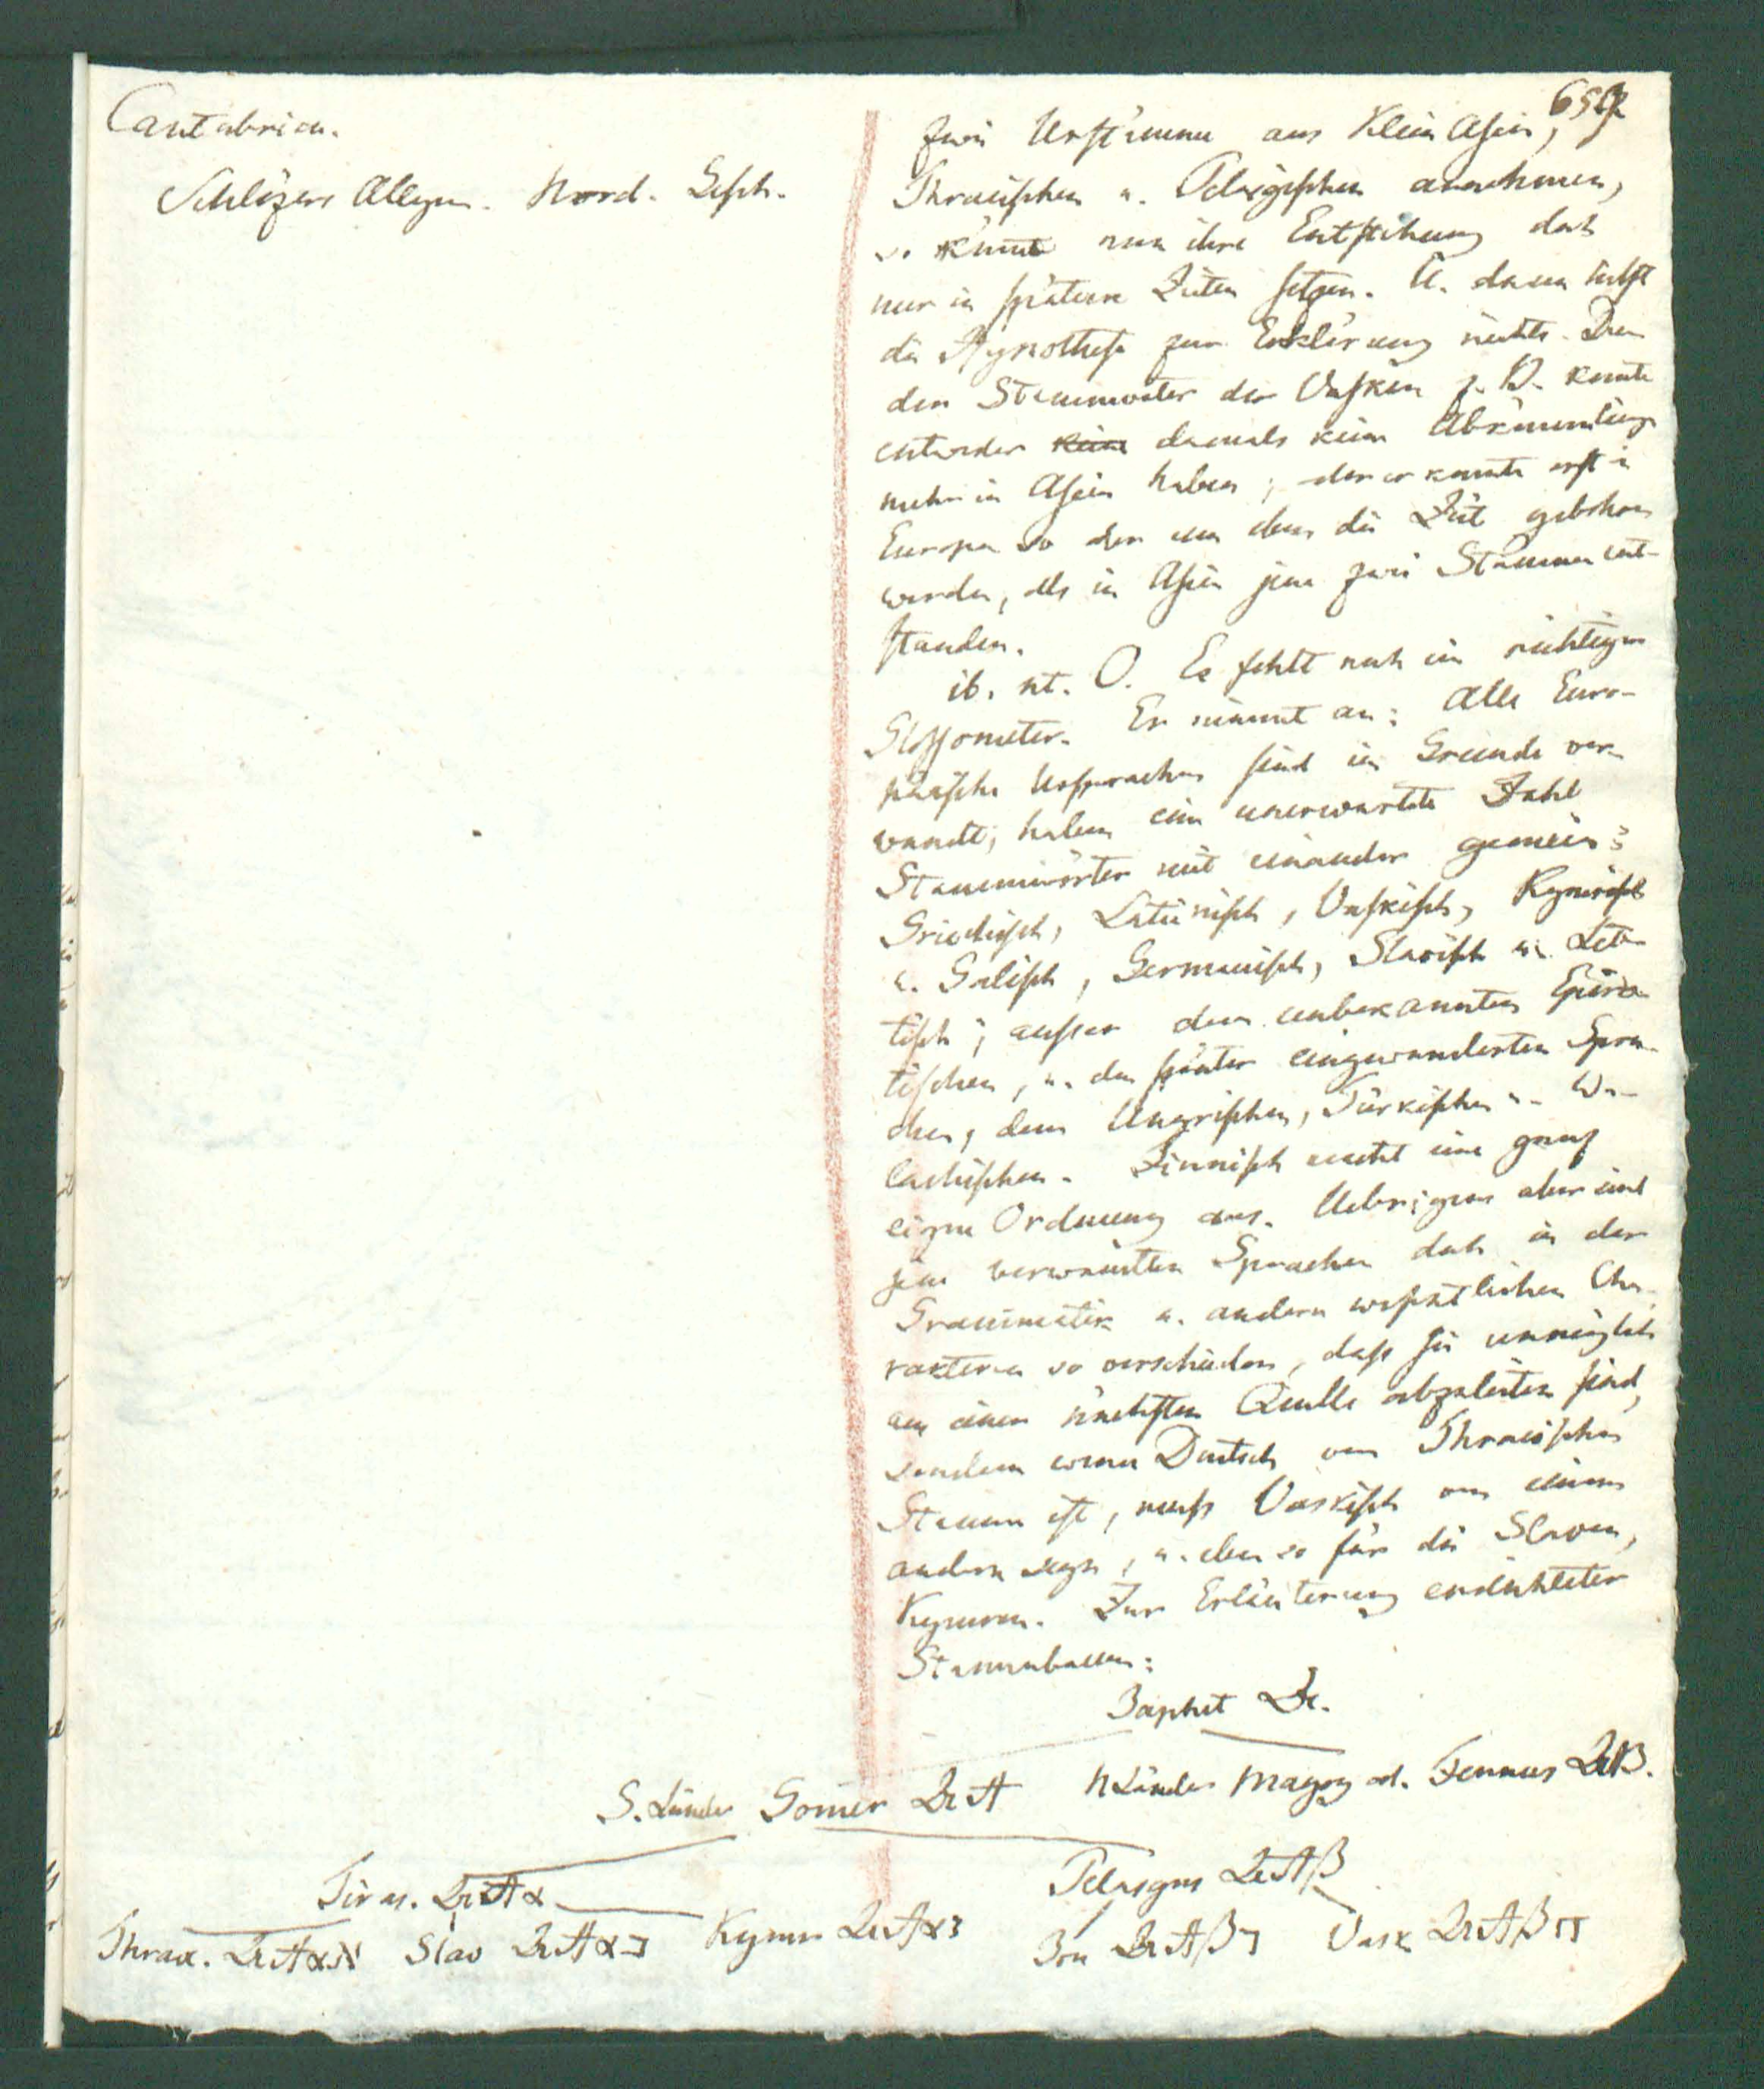 Cantabrica.
Schlözers Allgem. Nord. Gesch.
65
zwei Urstämme aus Klein Asien,
Thracischen u. Pelasgischen annehmen,
so könnte man ihre Entstehung doch
nur in spätere Zeiten setzen. U. dann hilft
die Hypothese zur Erklärung nichts. Den
den Stammvater der Vasken z. B. konnte
entweder keine damals keine Abkömmlinge
mehr in Asien haben; oder er konnte erst in
Europa so oder um eben die Zeit gebohren
werden, als in Asien jene zwei Stämme ent-
standen.
ib. nt. O. Es fehlt noch ein richtiger
Glossometer. Er nimmt an: Alle Euro-
päische Ursprachen sind im Grunde ver-
wandt, haben eine unerwartete Zahl
Stammwörter mit einander gemein:
Griechisch, Lateinisch, Vaskisch, Kymrisch
u. Galisch, Germanisch, Slavisch u. Let-
tisch; ausser dem unbekannten Epiro-
tischen, u. den später eingewanderten Spra-
chen, dem Ungrischen, Türkischen u. Wa-
lachischen. Finnisch macht eine ganz
eigne Ordnung aus. Uebrigens aber sind
jene verwandten Sprachen doch in der
Grammatik u. andern wesentlichen Cha-
rakteren so verschieden, dass sie unmöglich
aus einer nächsten Quelle abzuleiten sind,
sondern wenn Deutsch vom Thracischen
Stamm ist, muss Vaskisch von einem
andern seyn, u. eben so für die Slaven,
Kymren. Zur Erläuterung erdichteter
Stammbaum:
Japhet Dr.
S. Länder Gomer Dr A N Länder Magog od. Fennus Dr B.
Tiras. Dr A α Pelasgus Dr A β
Thrax. Dr A α א Slav Dr A α ב Kymr Dr A α ג Jon Dr A β ד Vask Dr A β ה